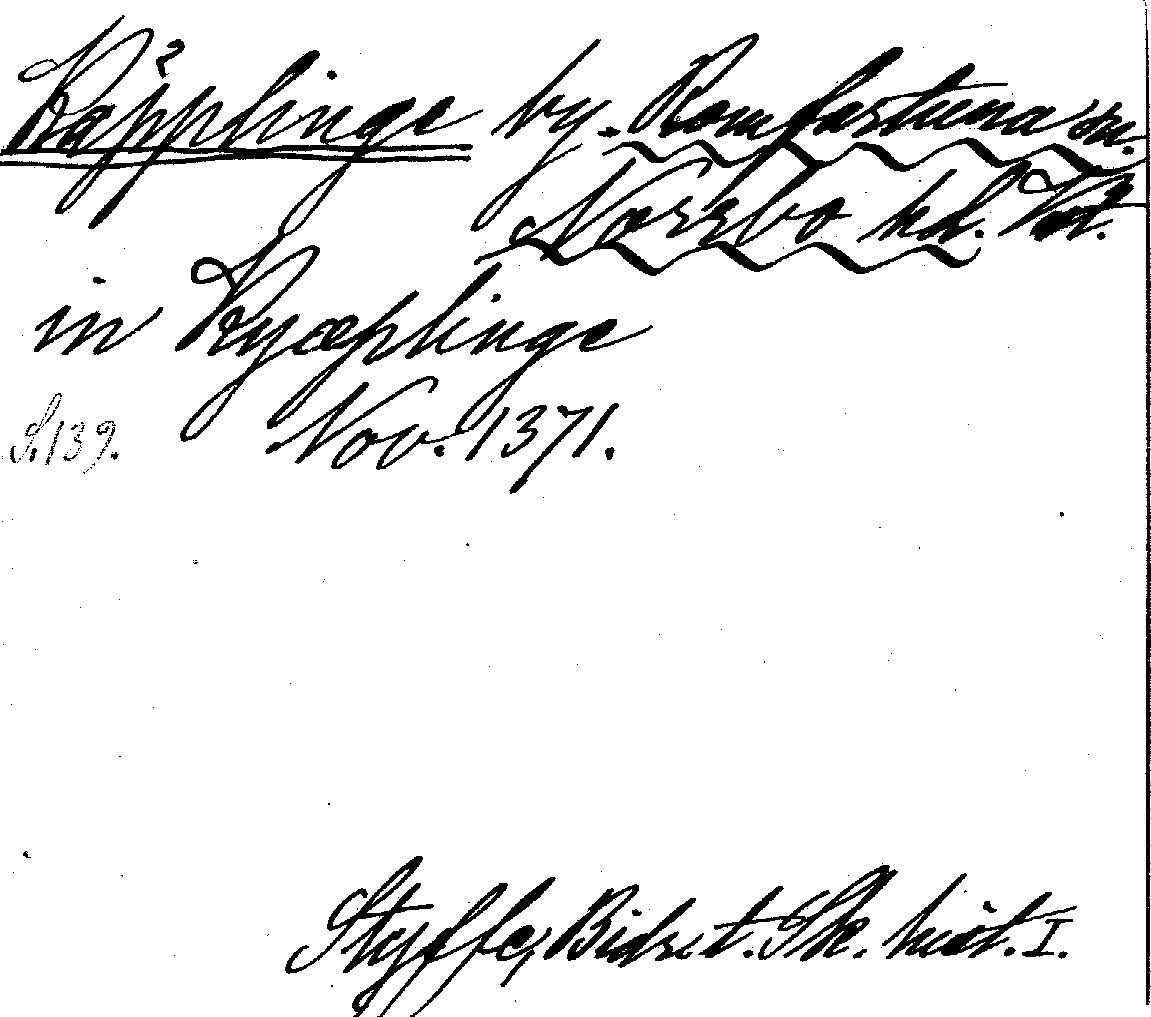 Käpplinge by. Romfartuna sn.
Norrbo hd. Vstm.
in Kyæplinge
S.139. Nov. 1371.
Styffe, Bidr. t. Sk. hist. I.